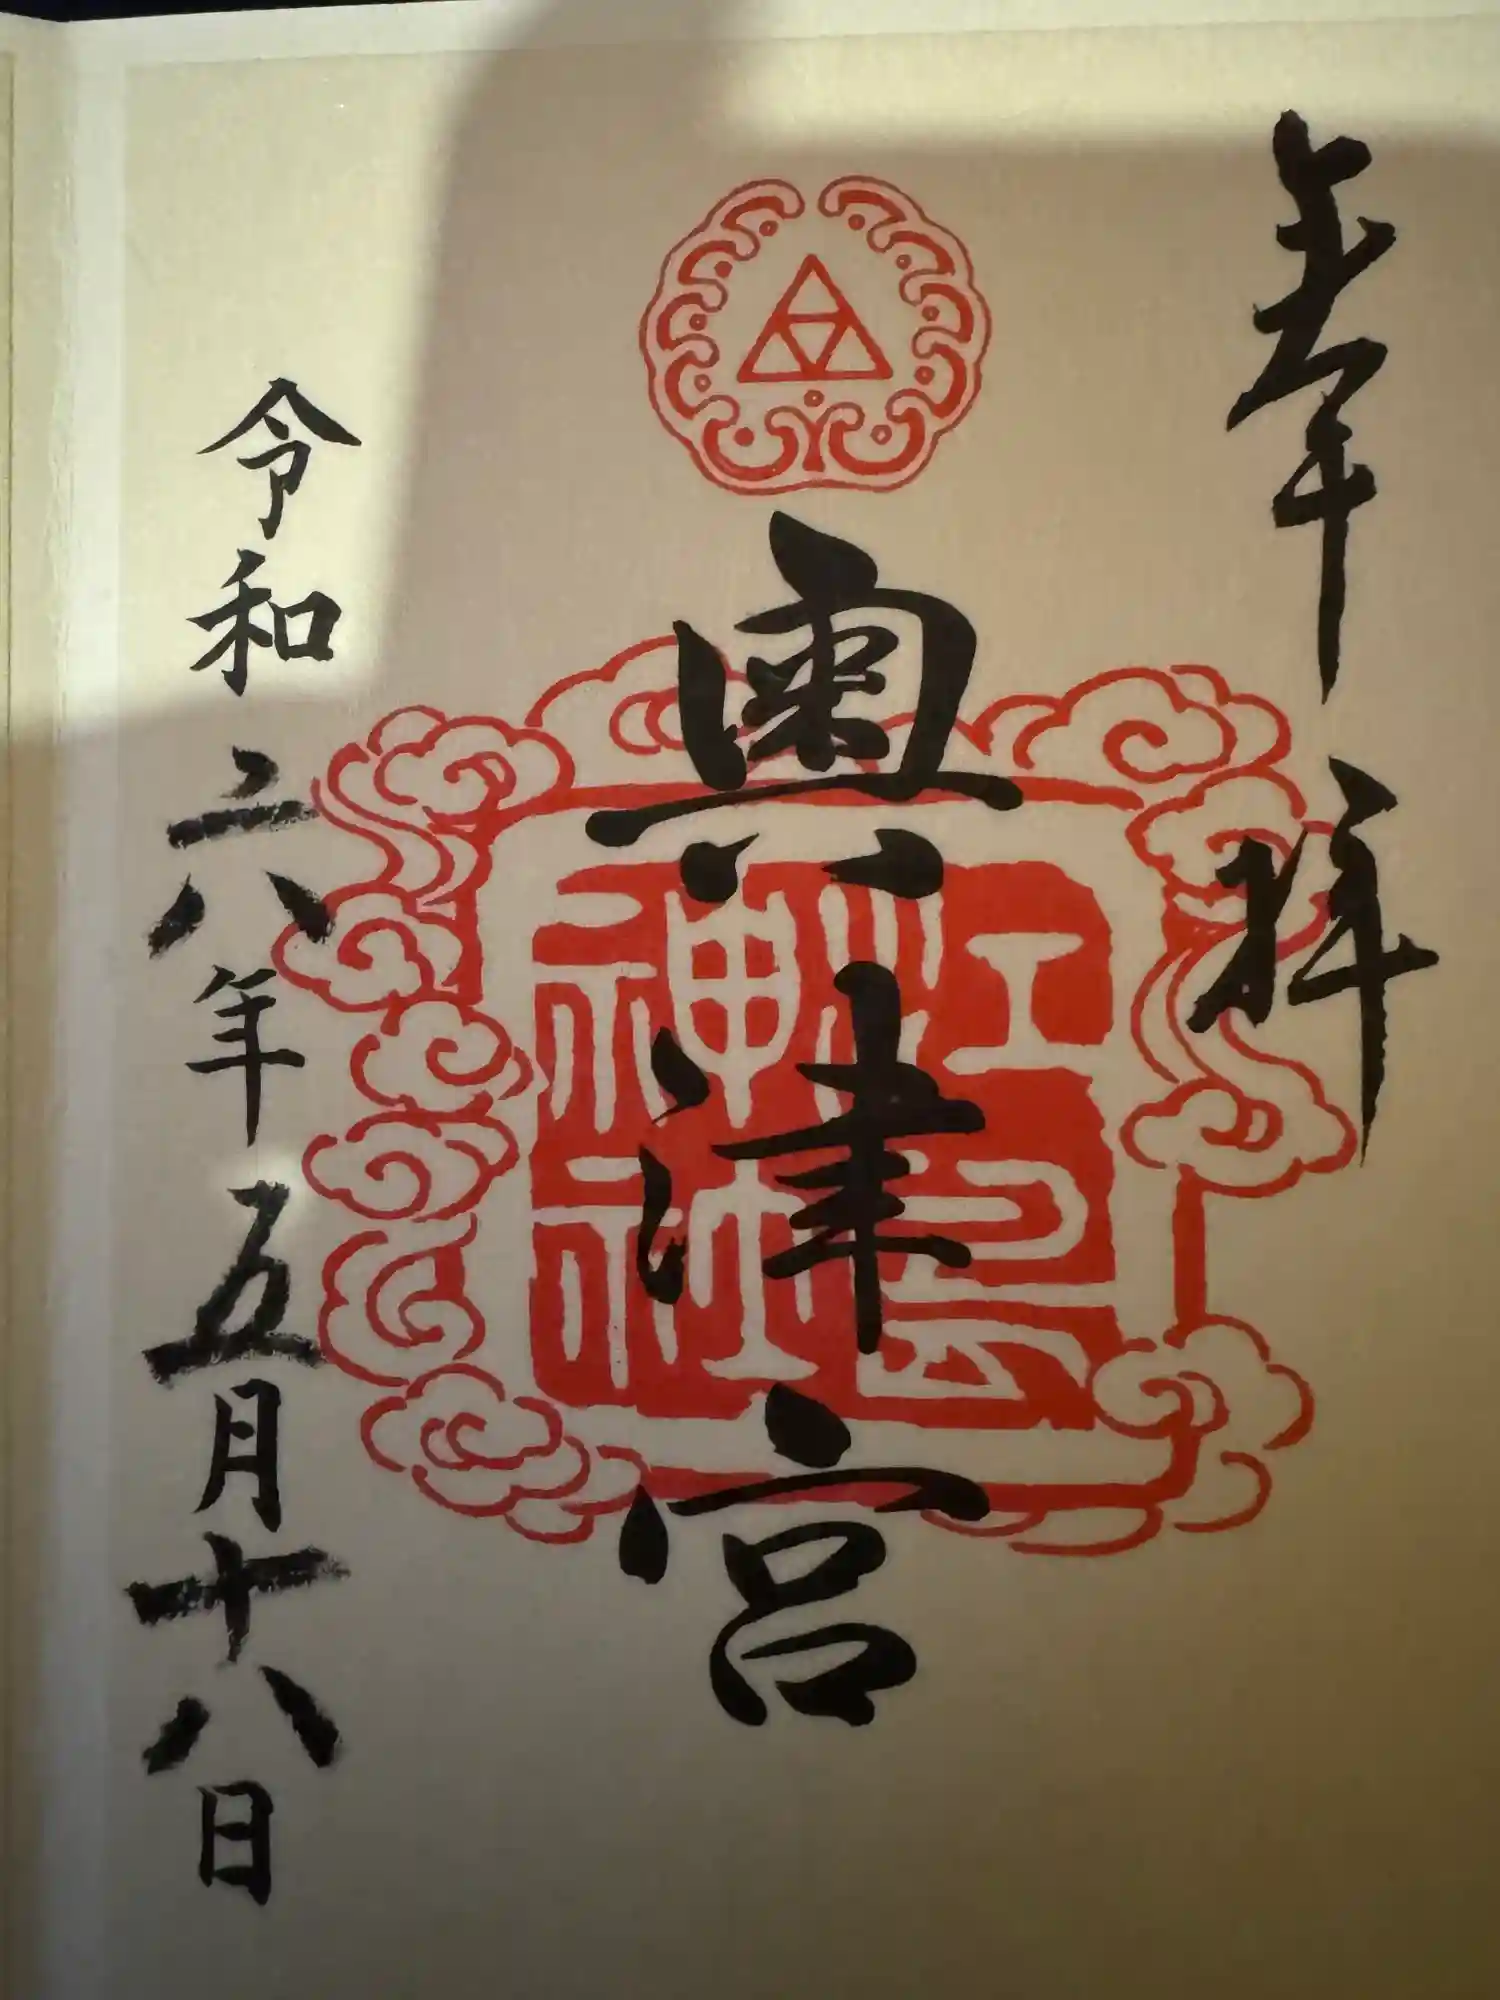 奉拝
奥津宮
江島神社
令和六年五月十八日